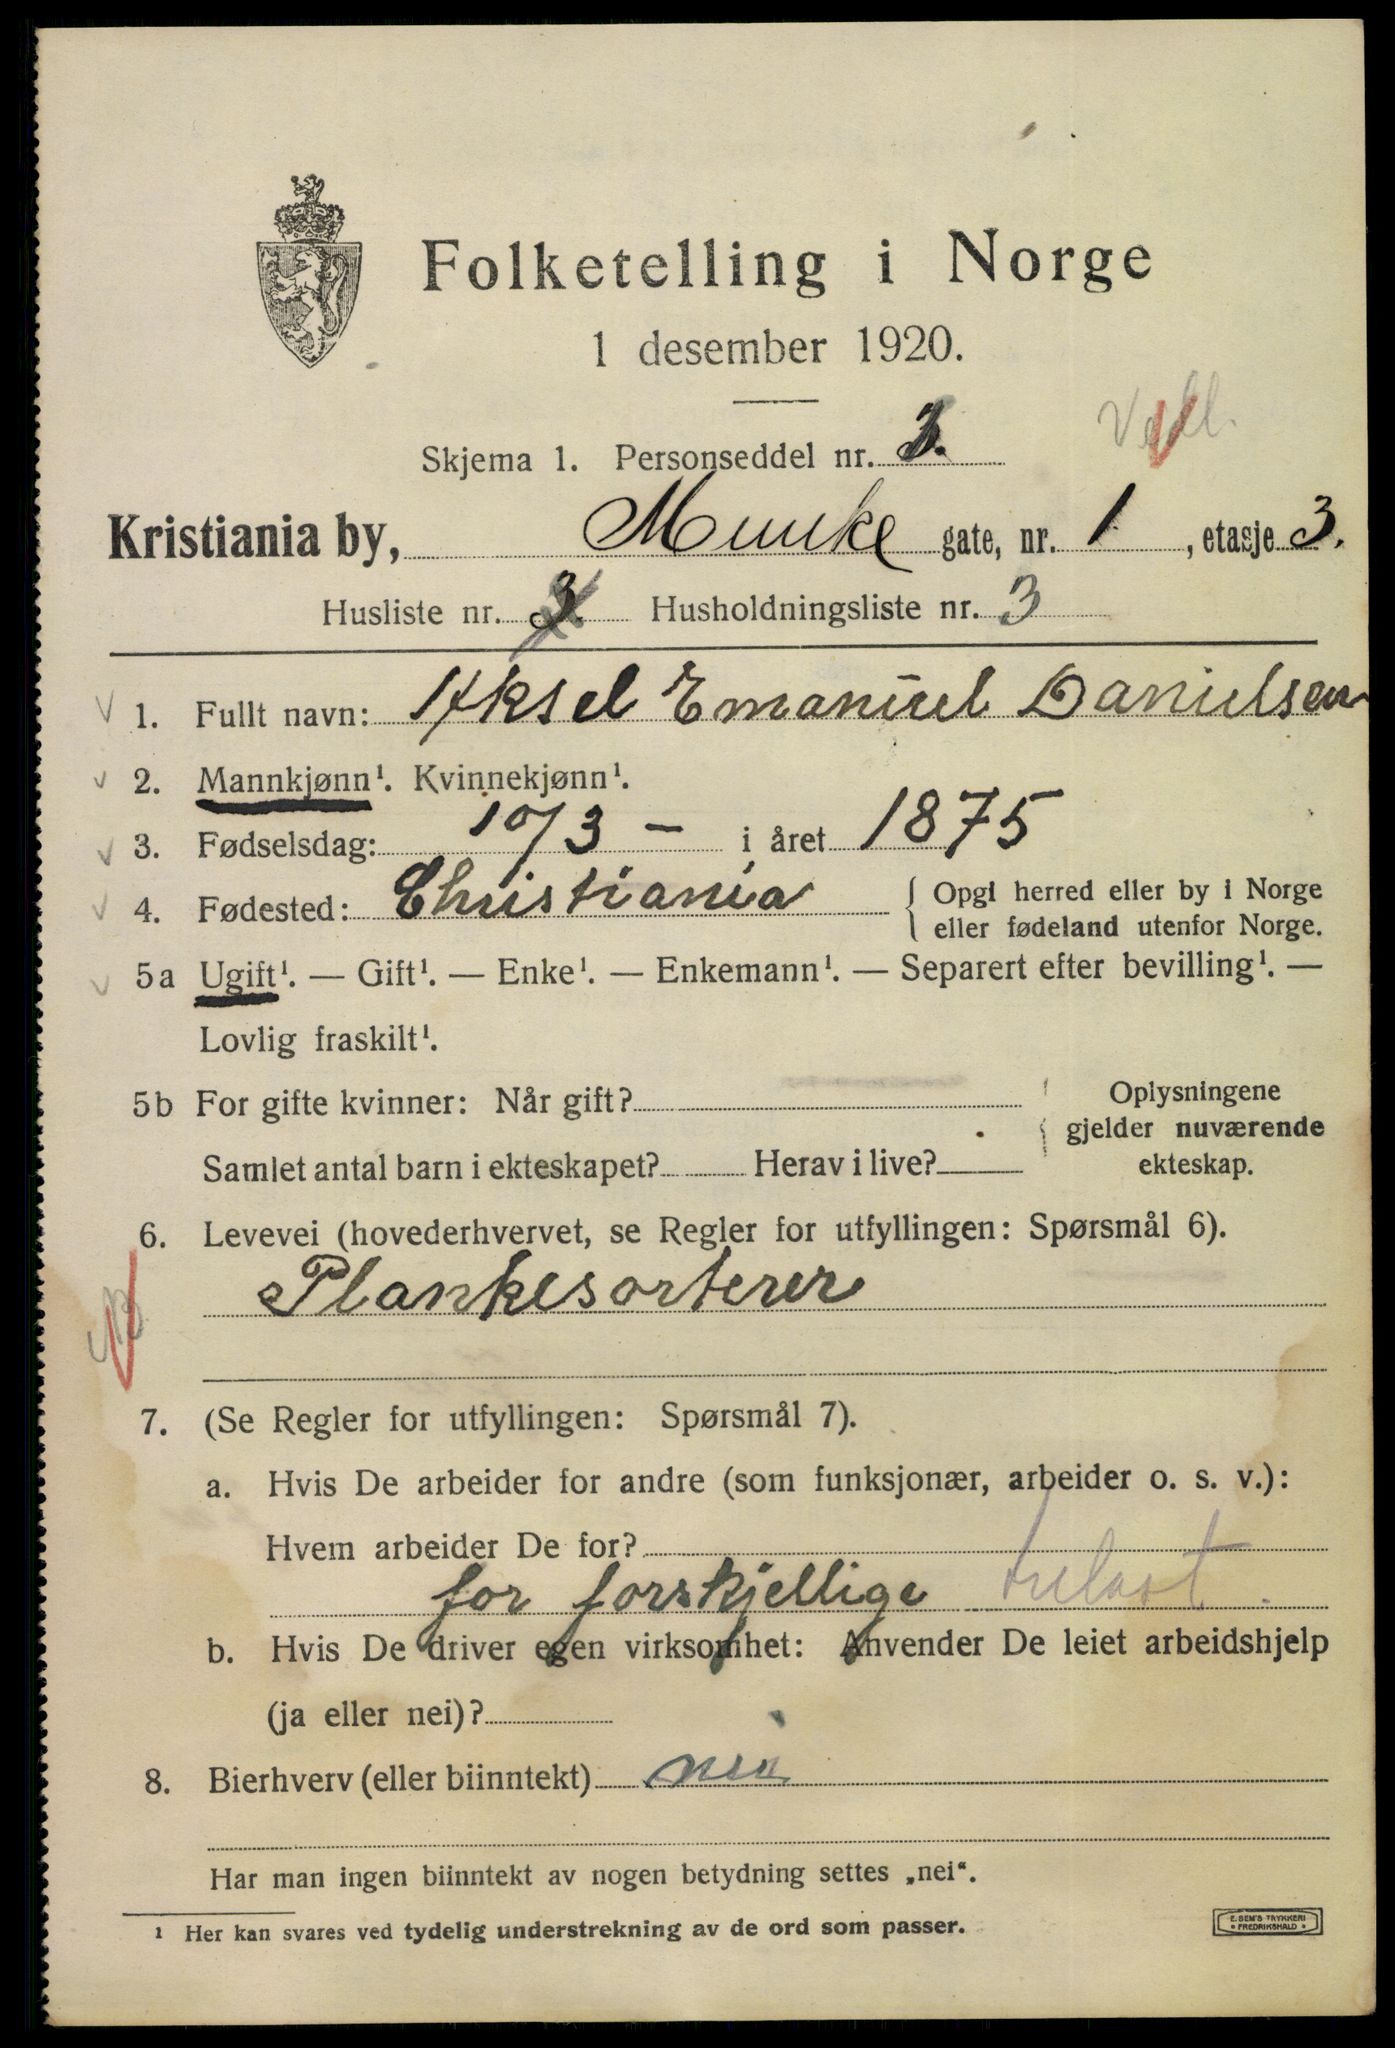 Folketelling i Norge
1 desember 1920.
Skjema 1. Personseddel nr. 3.
Kristiania by, Munke gate, nr. 1, etasje 3.
Husliste nr. 3. Husholdningsliste nr. 3
1. Fullt navn: Aksel Emanuel Danielsen
2. Mannkjønn¹. Kvinnekjønn¹.
3. Fødselsdag: 10/3 — i året 1875
4. Fødested: Christiania { Opgi herred eller by i Norge
eller fødeland utenfor Norge.
5a Ugift¹. — Gift¹. — Enke¹. — Enkemann¹. — Separert efter bevilling¹. —
Lovlig fraskilt¹.
5b For gifte kvinner: Når gift?
Samlet antal barn i ekteskapet? Herav i live?
Oplysningene
gjelder nuværende
ekteskap.
6. Levevei (hovederhvervet, se Regler for utfyllingen: Spørsmål 6).
Plankesorterer
7. (Se Regler for utfyllingen: Spørsmål 7).
a. Hvis De arbeider for andre (som funksjonær, arbeider o. s. v.):
Hvem arbeider De for?
for forskjellige trelast.
b. Hvis De driver egen virksomhet: Anvender De leiet arbeidshjelp
(ja eller nei)?
8. Bierhverv (eller biinntekt) nei
Har man ingen biinntekt av nogen betydning settes „nei“.
¹ Her kan svares ved tydelig understrekning av de ord som passer.
E. SEM'S TRYKKERI
• FREDRIKSHALD •